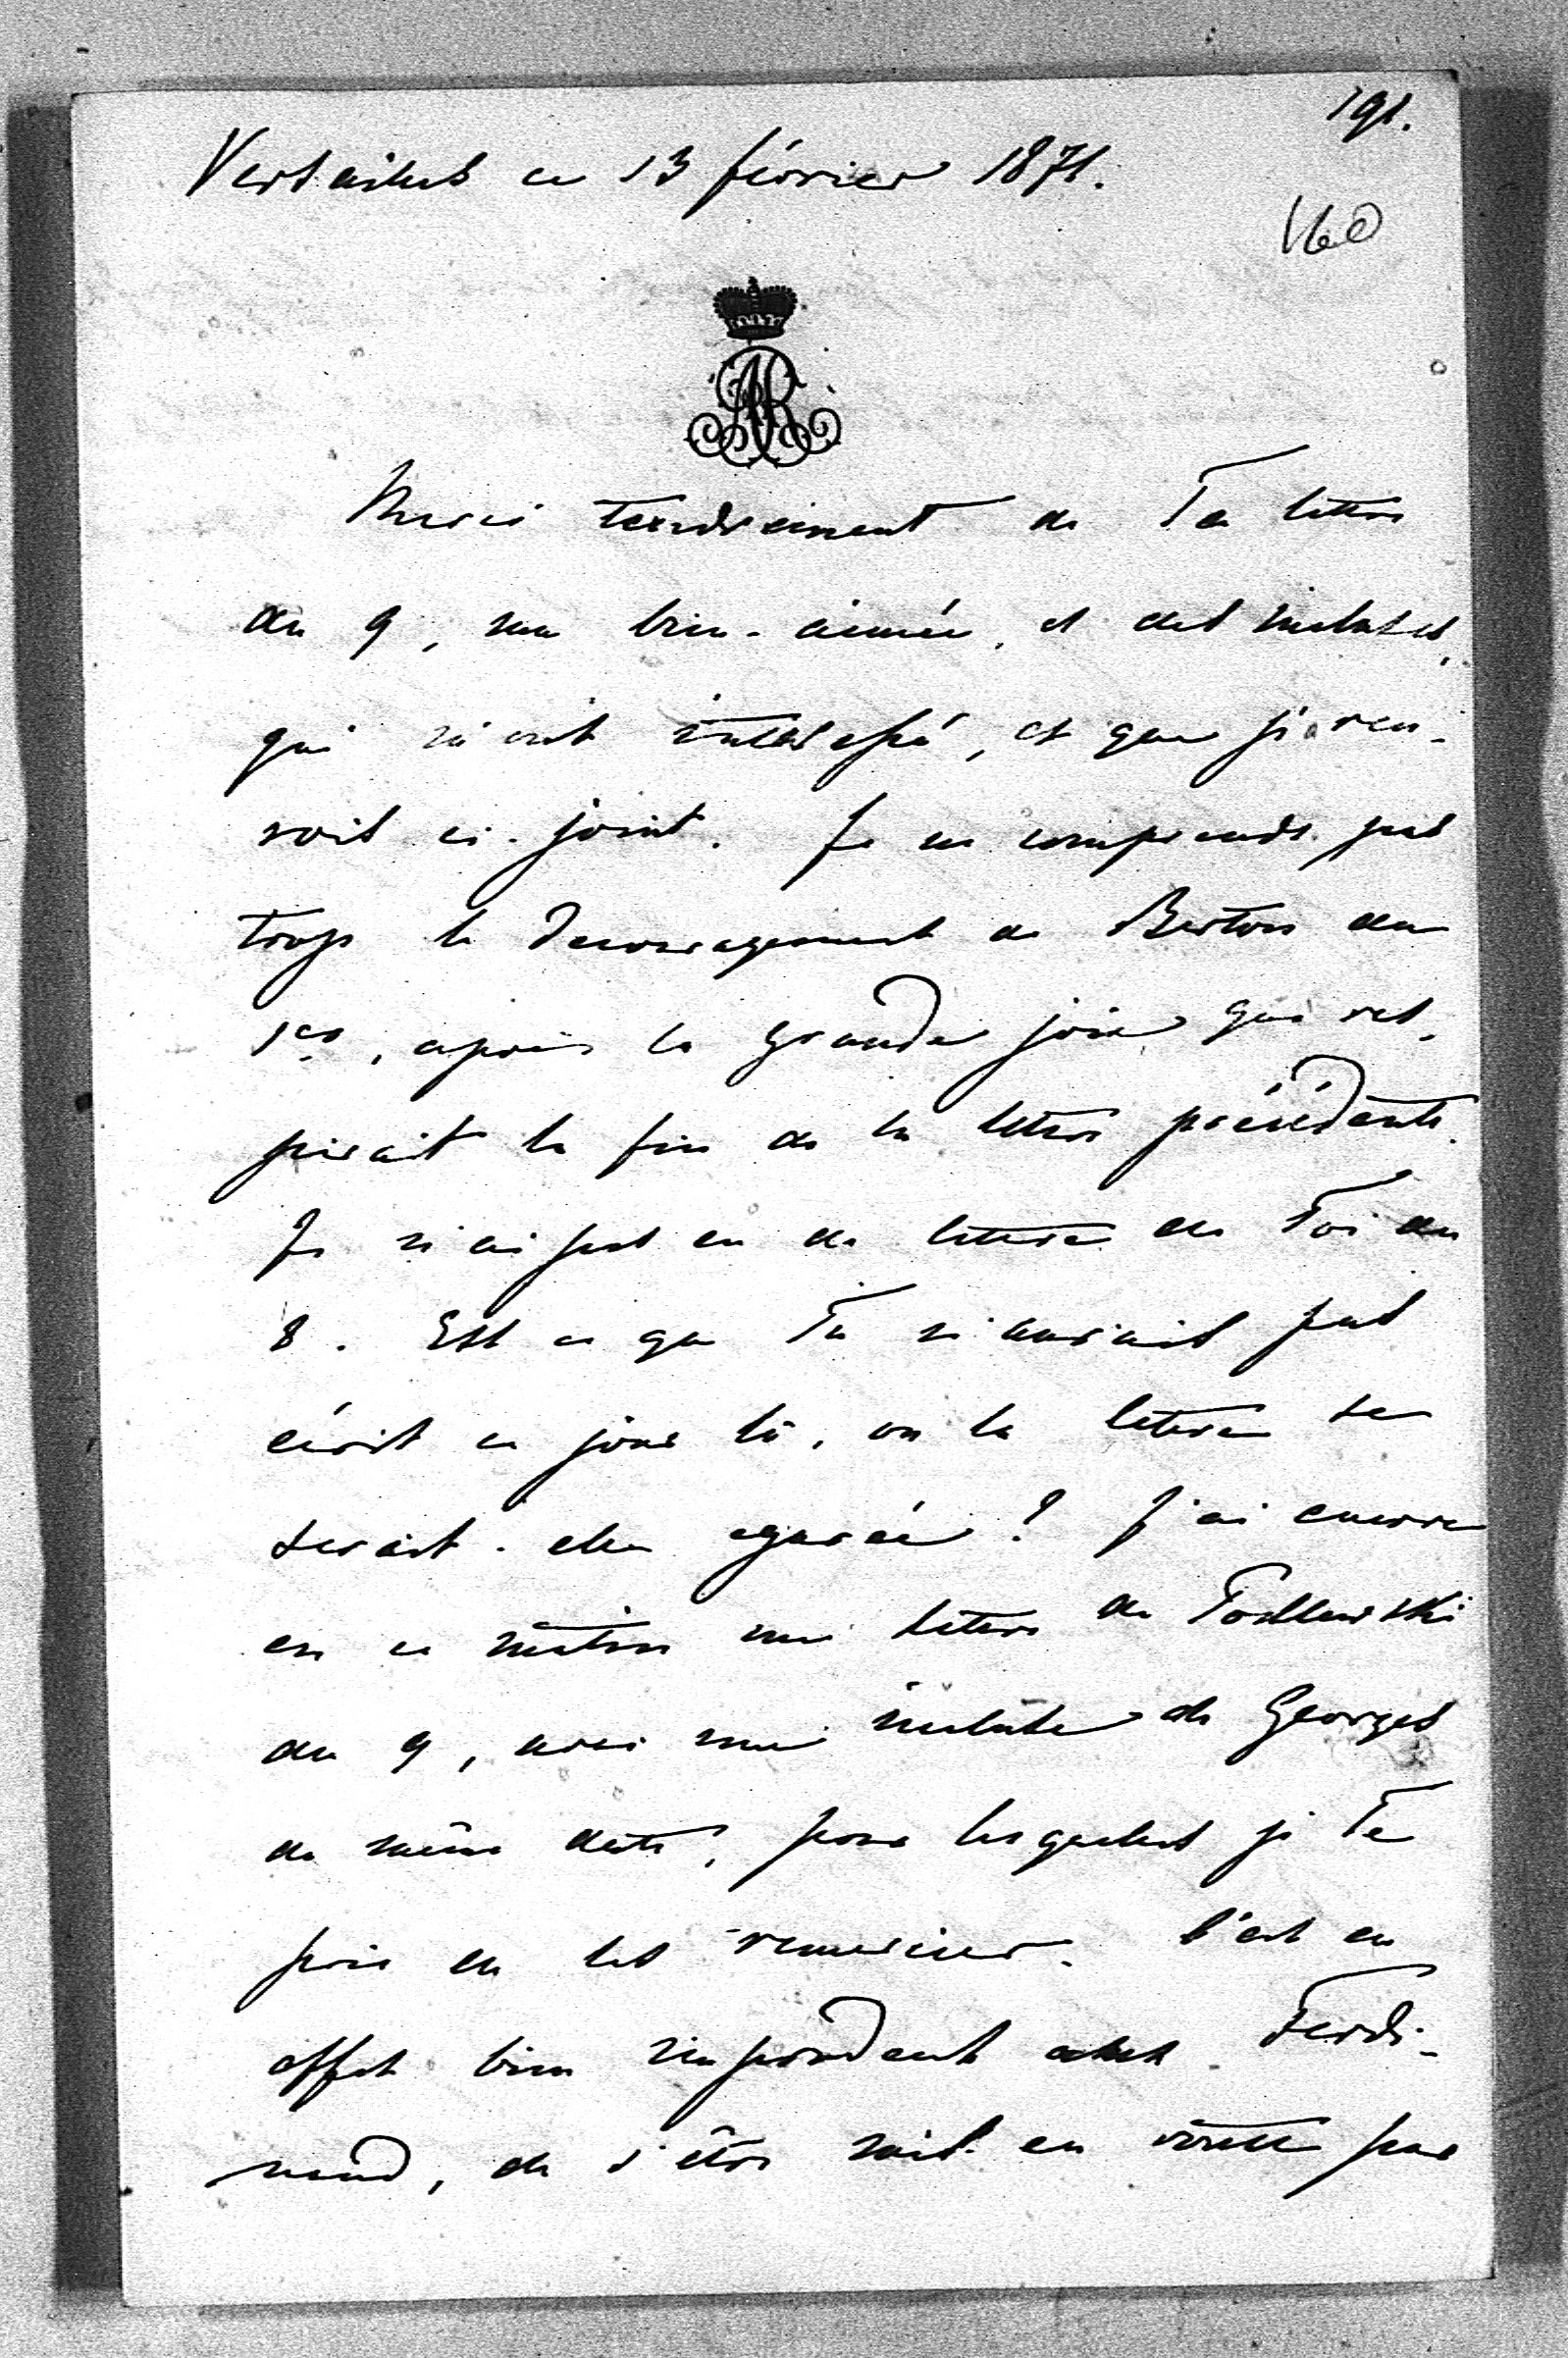 191.
Versailles ce 13 février 1871.
160
AR
Merci tendrement de Ta lettre
du 9, ma bien-aimée, et des incluses,
qui m'ont intéressé, et que je ren-
vois ci-joint. Je ne comprends pas
trop le decouragement de Berton du
1er, après la grande joie que res-
pirait la fin de sa lettre précédente.
Je n'ai pas eu de lettre de Toi du
8. Est ce que Tu n'aurais pas
écrit ce jour là, ou la lettre se
serait-elle egarée? J'ai encore
eu ce matin une lettre de
du 9, avec une incluse de Georges
de même date, pour lesquelles je Te
prie en les remercier. C'est en
effet bien imprudent chez Ferdi-
nand, de s'être mis en route par